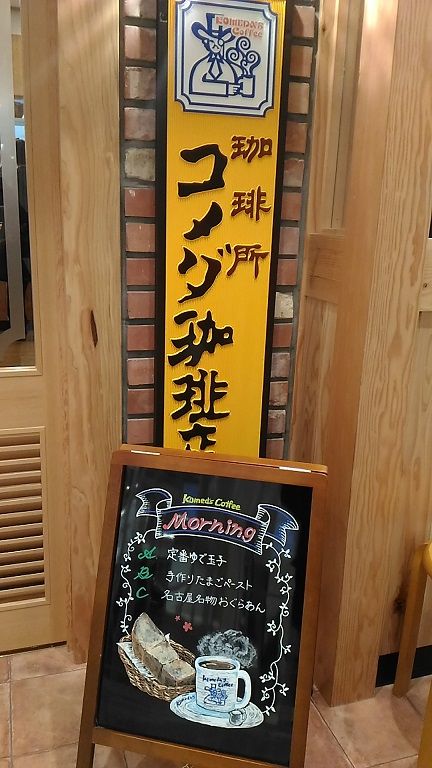 KOMEDA'S
Coffee
珈琲所
コメダ珈琲店
Komeda's Coffee
Morning
A 定番ゆで玉子
B 手作りたまごペースト
C 名古屋名物おぐらあん
Komeda's Coffee